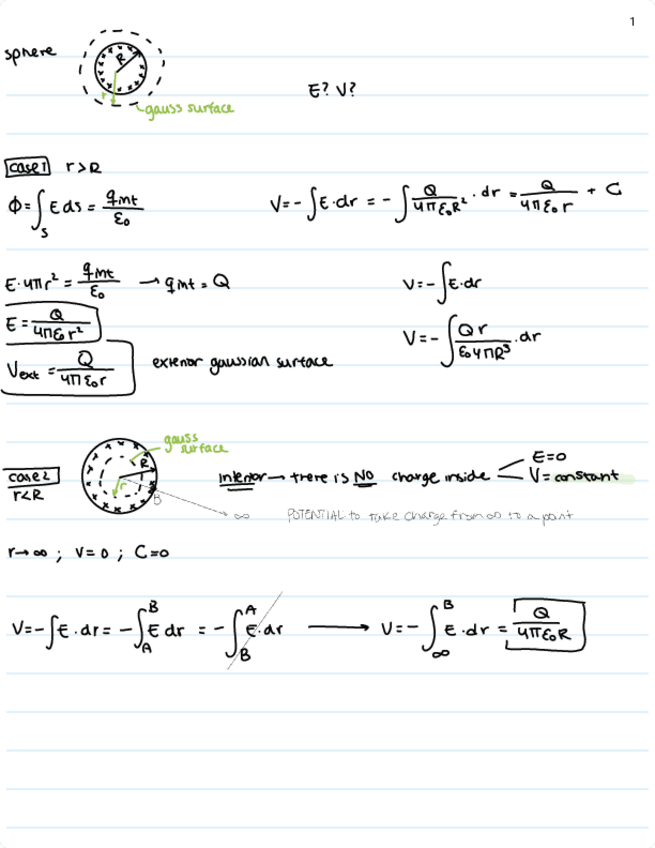 1
sphere
R
r
gauss surface
E? V?
case 1 r>R
Φ=∫_S E ds = qint/ε₀
V=-∫E·dr = -∫ Q/4πε₀R² · dr = Q/4πε₀r + C
E·4πr² = qint/ε₀ → qint = Q
V=-∫E·dr
E = Q/4πε₀r²
V=-∫ Qr/ε₀4πR³ · dr
Vext = Q/4πε₀r exterior gaussian surface
gauss surface
R
r
B
case 2 r<R
interior → there is NO charge inside
E=0
V=constant
∞ POTENTIAL to take charge from ∞ to a point
r→∞ ; V=0 ; C=0
V=-∫E·dr = -∫_A^B E dr = -∫_B^A E·dr → V=-∫_∞^B E·dr = Q/4πε₀R